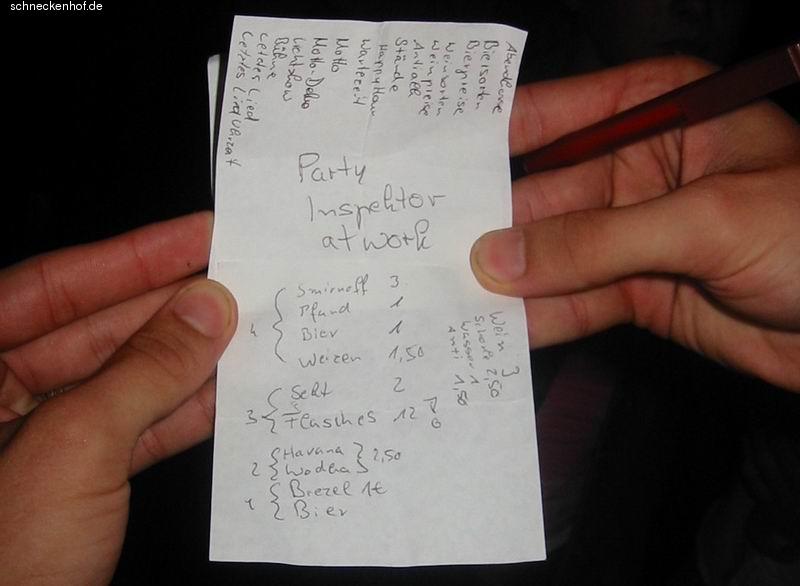 schneckenhof.de
Abendkasse
Biersorten
Bierpreise
Weinsorten
Weinpreise
Antialk
Stände
HappyHour
Wartezeit
Motto
Motto-Deko
Lichtshow
Bühne
Letztes Lied
Letztes Lied Uhrzeit
Party
Inspektor
at work
4 { Smirnoff 3
Pfand 1
Bier 1
Weizen 1,50
3 { Sekt 2
Flasches 12
2 { Havana } 2,50
Wodka
{ Brezel 1€
Bier
Wein 3
Schorle 2,50
Wasser 1
Anti 1,50